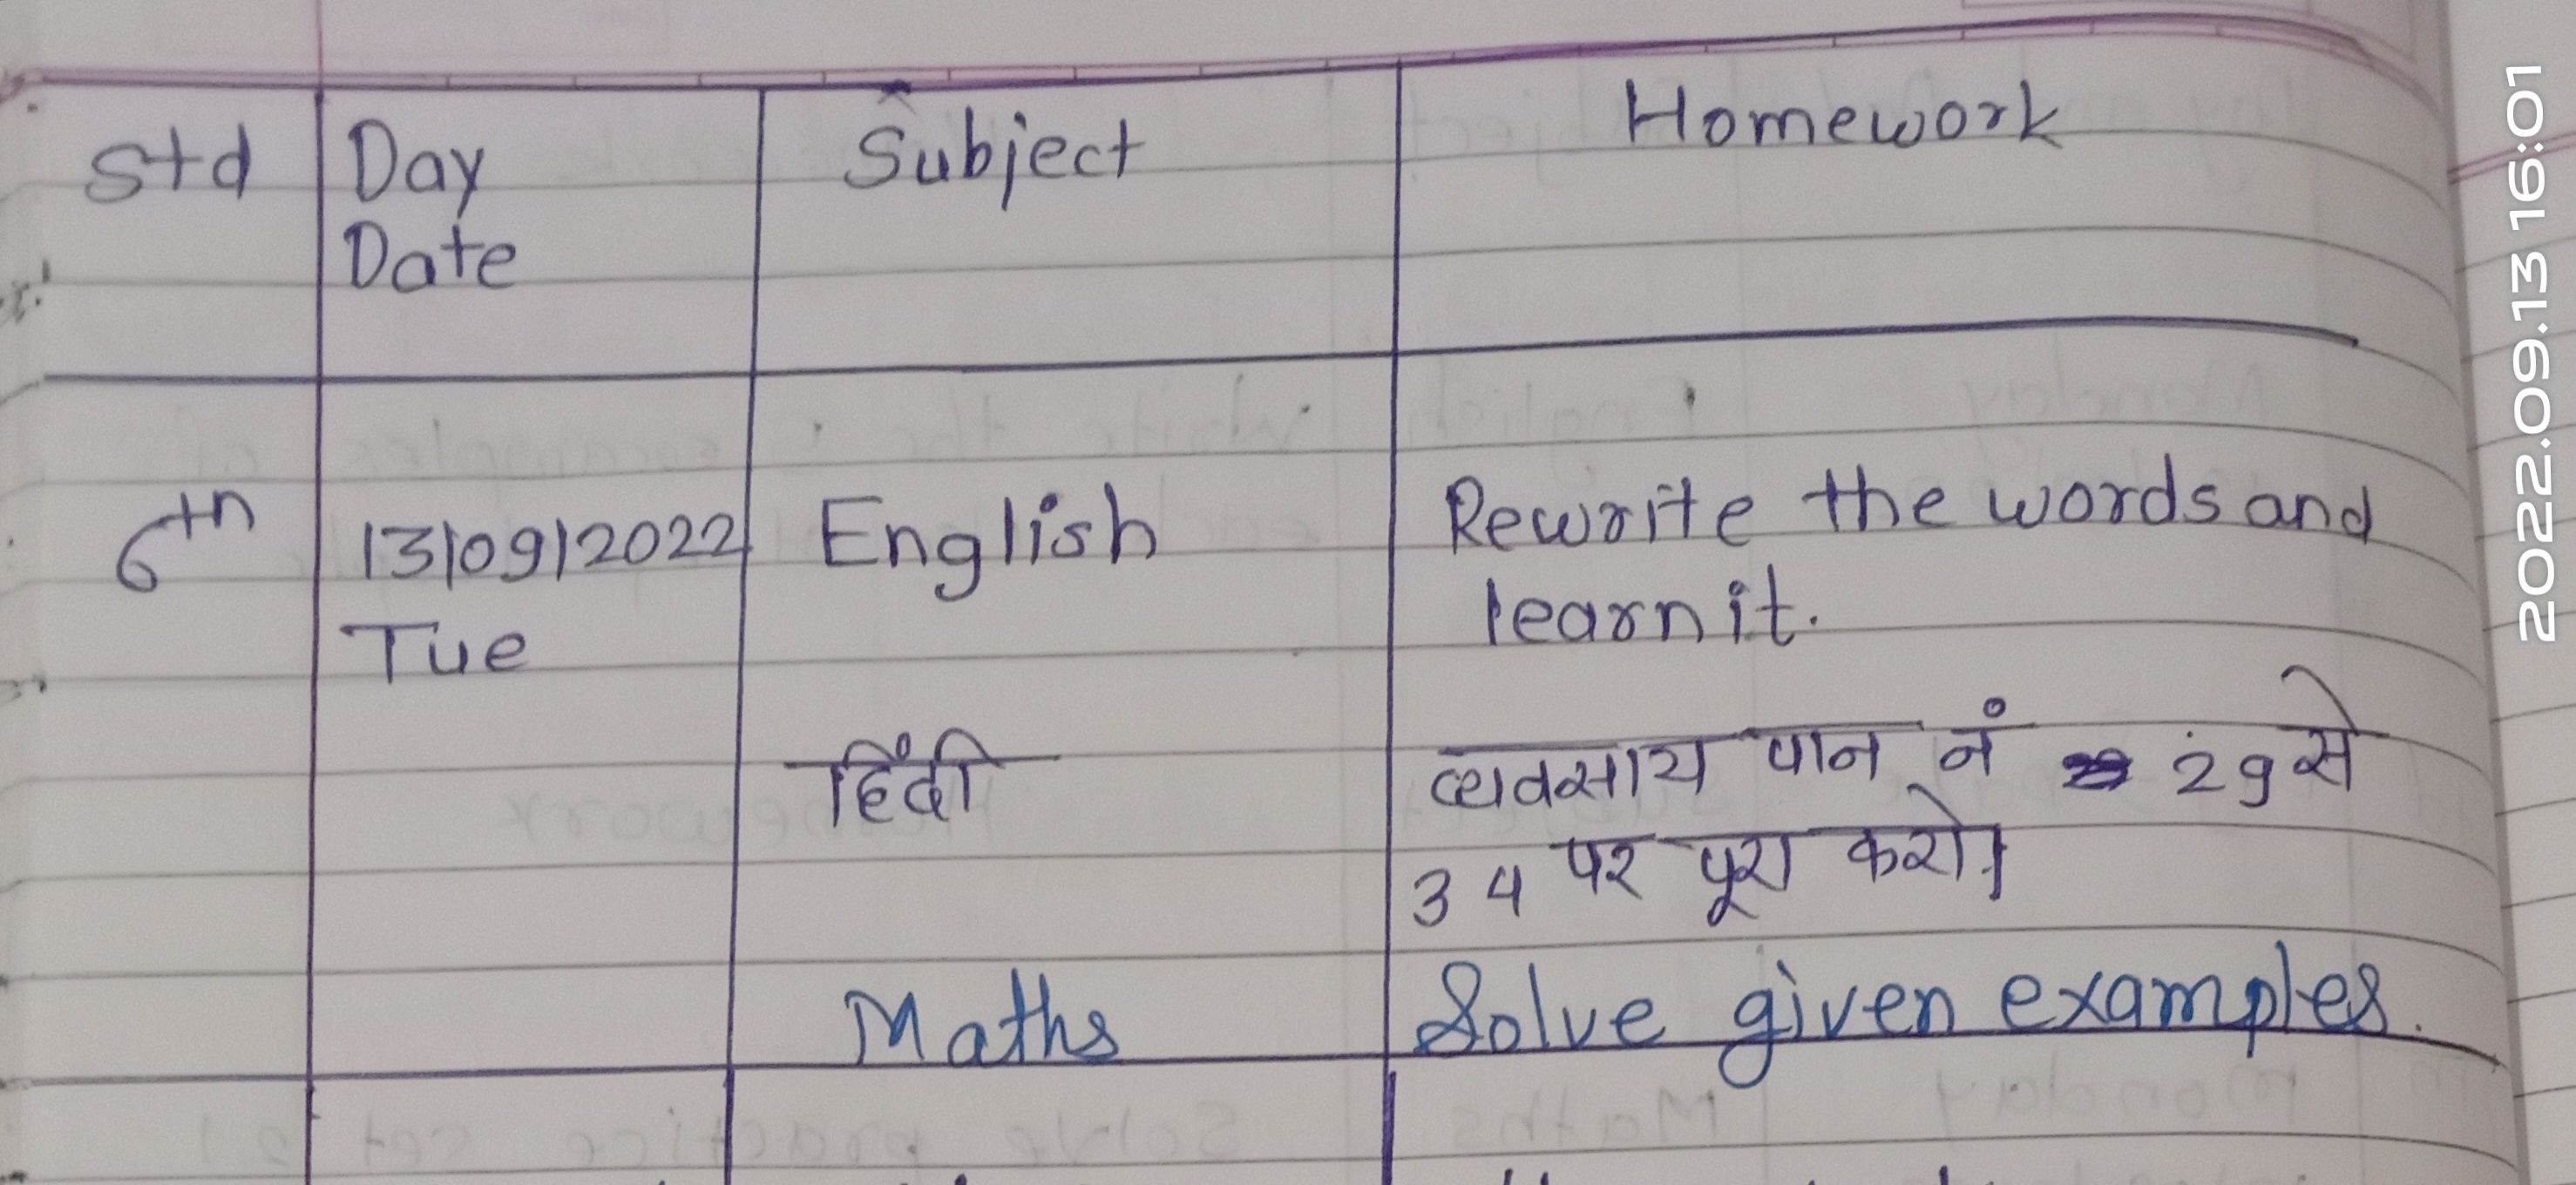 Std Day Subject Homework
Date
6th 13/09/2022 English Rewrite the words and
Tue learn it.
हिंदी व्यवसाय पान नं 29 से
34 पर पूरा करो।
Maths Solve given examples.
2022.09.13 16:01